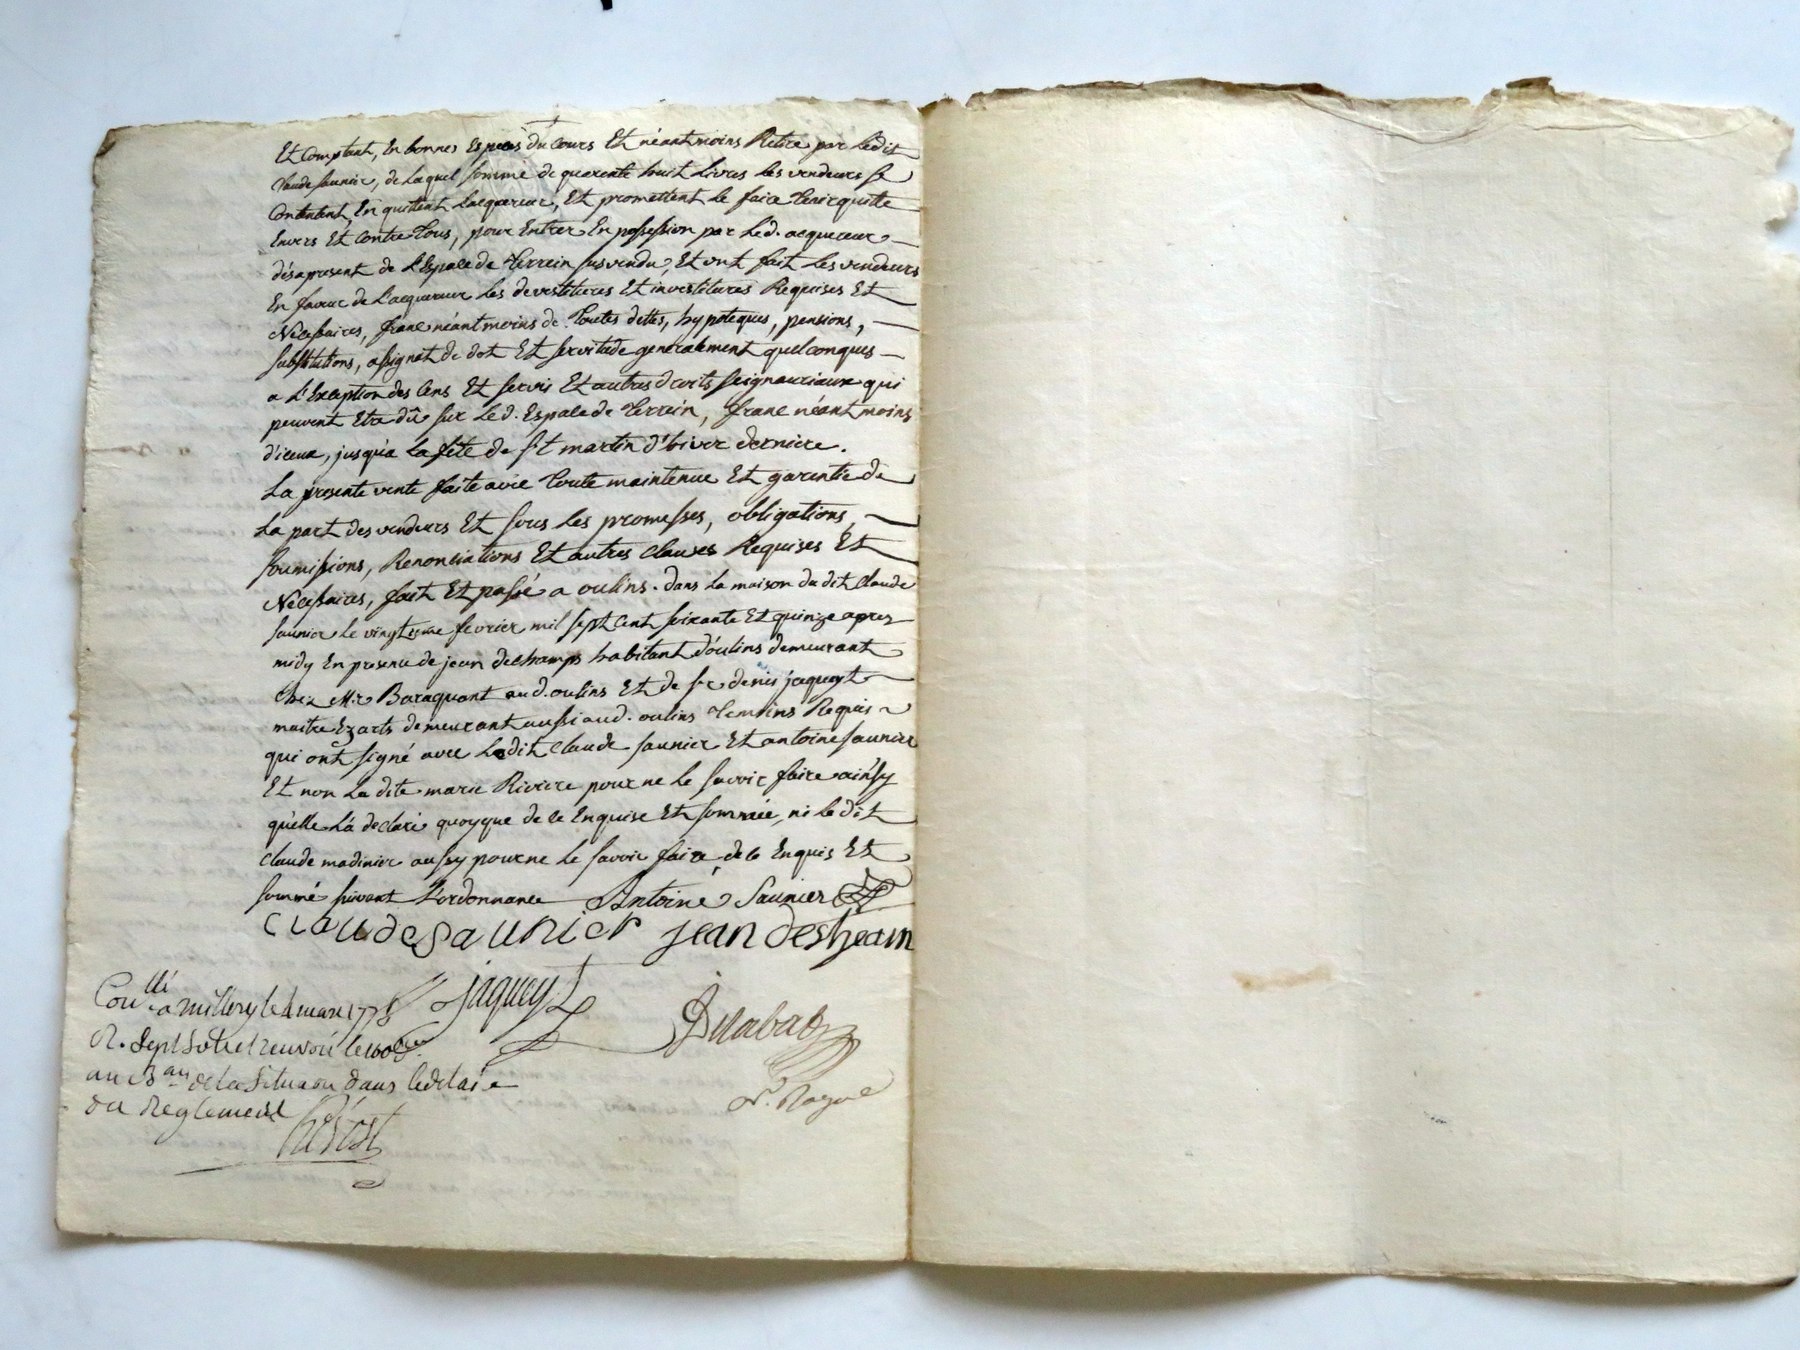 Et Comptant, En bonnes Especes du cours Et néantmoins Retiré par Ledit
Claude saunier, de Laquel somme de quarente huit Livres Les vendeurs se
Contentent, En quittent Lacquereur, Et promettent Le faire Tenir quitte
Envers Et Contre Tous, pour Entrer En possession par Led. acquereur
désapresent de L'Espace de Terrein susvendu, Et ont fait Les vendeurs
En faveur de L'acquereur Les devestitures Et investitures Requises Et
Nécessaires, franc néantmoins de Toutes dettes, hypoteques, pensions,
substitutions, assignat de dot Et servitude generalement quelconques
a L'Exception des Cens Et servis Et autres droits seigneuriaux qui
peuvent Etre dû sur Led. Espace de Terrein, franc néantmoins
d'iceux, jusqu'a La fête de st martin d'hiver derniere.
La presente vente faite avec Toute maintenue Et garentie de
La part des vendeurs Et sous Les promesses, obligations,
soumissions, Renonciations Et autres clauses Requises Et
Nécessaires, fait Et passé a oulins. dans La maison du dit Claude
saunier Le vingtieme fevrier mil sept Cent soixante Et quinze apres
midy En presence de jean dechamps habitant d'oulins demeurant
chez Mr. Baraquant aud. oulins Et de sr denis jaqueyt
maitre Ez arts demeurant aussi aud. oulins Temoins Requis
qui ont signé avec Ledit Claude saunier Et antoine saunier
Et non La dite marie Riviere pour ne Le savoir faire ainsy
qu'elle L'a declaré quoyque de ce Enquise Et sommée, ni Le dit
claude madinier aussy pour ne Le savoir faire de ce Enquis Et
sommé suivant L'ordonnance Antoine Saunier
Claude Saunier jean desham
jaqueyt
Con.lle a millery le mars 1775
R. Sept Sols et renvoié le 100e d.er
au B.au de la Situaon dans le delaie
du Reglement